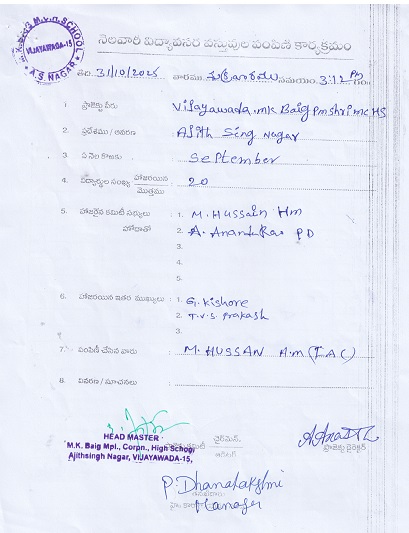 M.K. BAIG M.V.R. SCHOOL
VIJAYAWADA-15
A.S. NAGAR
నెలవారీ విద్యావసర వస్తువుల పంపిణీ కార్యక్రమం
తేది 31/10/2025 వారము శుక్రవారము సమయం 3:12 PM
1 ప్రాజెక్టు పేరు Vijayawada, MK Baig pm shri mc HS
2. ప్రదేశము / ఆవరణ Ajith Sing Nagar
3. ఏ నెల కొరకు September
4. విద్యార్థుల సంఖ్య హాజరయిన మొత్తము : 20
5. హాజరైన కమిటీ సభ్యులు : 1. M. Hussain Hm
హోదాతో 2. A. Ananda Rao PD
3.
4.
5.
6. హాజరయిన ఇతర ముఖ్యులు : 1. G. Kishore
2. T.V.S. Prakash
3.
7. పంపిణీ చేసిన వారు : M. HUSSAN A.M (I.A.C)
8. వివరణ / సూచనలు :
HEAD MASTER
M.K. Baig Mpl., Corpn., High School
Ajithsingh Nagar, VIJAYAWADA-15,
కమిటీ
చైర్మెన్,
ప్రాజెక్టు డైరెక్టర్
P. Dhanalakshmi
Manager